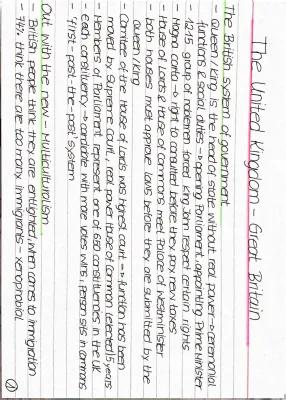 The United Kingdom - Great Britain
The British system of government
- Queen/King is the head of state without real power → ceremonial
functions & social duties → opening Parliament, appointing Prime Minister
- 1215 group of noblemen forced King John respect certain rights
- Magna carta → right to consulted before they pay new taxes
- House of Lords & House of Commons meet Palace of Westminister
- both houses must approve laws before they are submitted by the
queen/king
- Comitee of the House of Lords was highest court → function has been
moved by Supreme Court, real power House of Common (elected) 5 years
- Members of Parliament represent one of 650 constituences in the UK
each constituency → candidate with more votes wins: Person sits in commons
- "first-past-the-post system
Out with the new - Multiculturalism
- British people think they are entlighted, when comes to immigration
- 74% think there are too many immigrants - xenophobial
①